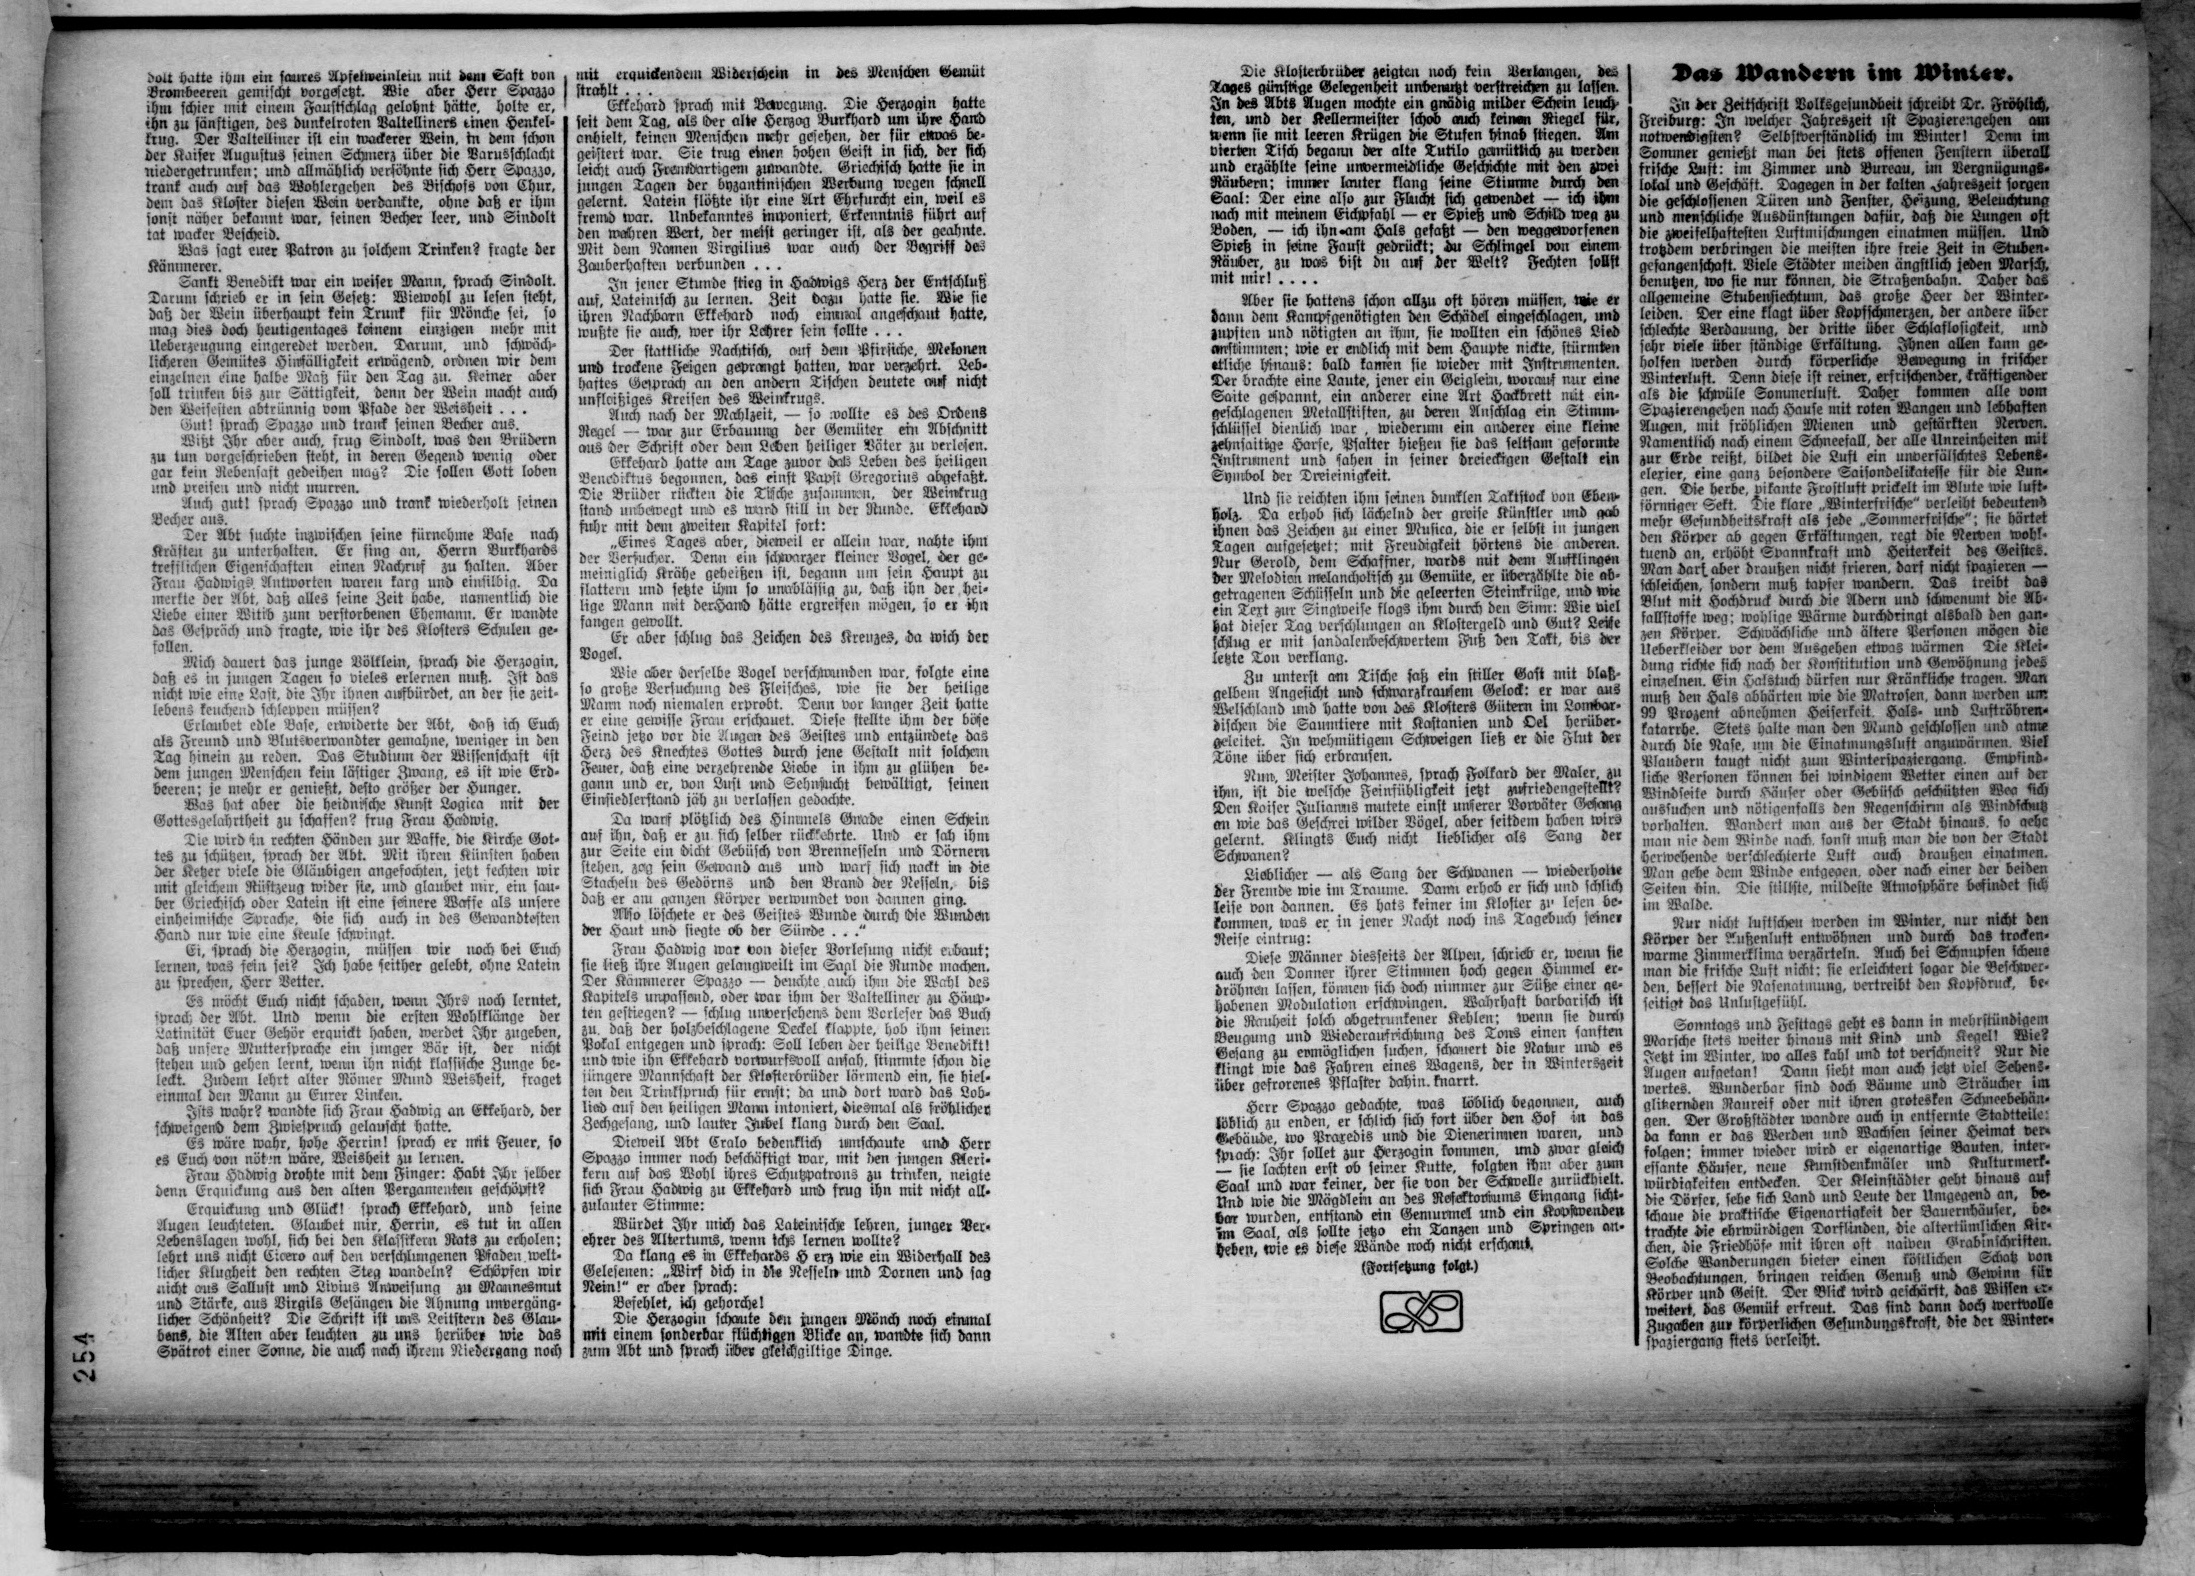 dolt hatte ihm ein saures Apfelweinlein mit dem Saft von
Brombeeren gemischt vorgesetzt. Wie aber Herr Spazzo
ihm schier mit einem Faustschlag gelohnt hätte, holte er,
ihn zu sänftigen, des dunkelroten Valtelliners einen Henkel-
krug. Der Valtelliner ist ein wackerer Wein, in dem schon
der Kaiser Augustus seinen Schmerz über die Varusschlacht
niedergetrunken; und allmählich versöhnte sich Herr Spazzo,
trank auch auf das Wohlergehen des Bischofs von Chur,
dem das Kloster diesen Wein verdankte, ohne daß er ihm
sonst näher bekannt war, seinen Becher leer, und Sindolt
tat wacker Bescheid.
Was sagt euer Patron zu solchem Trinken? fragte der
Kämmerer.
Sankt Benedikt war ein weiser Mann, sprach Sindolt.
Darum schrieb er in sein Gesetz: Wiewohl zu lesen steht,
daß der Wein überhaupt kein Trunk für Mönche sei, so
mag dies doch heutigentages keinem einzigen mehr mit
Ueberzeugung eingeredet werden. Darum, und schwäch-
licheren Gemütes Hinfälligkeit erwägend, ordnen wir dem
einzelnen eine halbe Maß für den Tag zu. Keiner aber
soll trinken bis zur Sättigkeit, denn der Wein macht auch
den Weisesten abtrünnig vom Pfade der Weisheit . . .
Gut! sprach Spazzo und trank seinen Becher aus.
Wißt Ihr aber auch, frug Sindolt, was den Brüdern
zu tun vorgeschrieben steht, in deren Gegend wenig oder
gar kein Rebensaft gedeihen mag? Die sollen Gott loben
und preisen und nicht murren.
Auch gut! sprach Spazzo und trank wiederholt seinen
Becher aus.
Der Abt suchte inzwischen seine fürnehme Base nach
Kräften zu unterhalten. Er fing an, Herrn Burkhards
trefflichen Eigenschaften einen Nachruf zu halten. Aber
Frau Hadwigs Antworten waren karg und einsilbig. Da
merkte der Abt, daß alles seine Zeit habe, namentlich die
Liebe einer Witib zum verstorbenen Ehemann. Er wandte
das Gespräch und fragte, wie ihr des Klosters Schulen ge-
fallen.
Mich dauert das junge Völklein, sprach die Herzogin,
daß es in jungen Tagen so vieles erlernen muß. Ist das
nicht wie eine Last, die Ihr ihnen aufbürdet, an der sie zeit-
lebens keuchend schleppen müssen?
Erlaubet edle Base, erwiderte der Abt, daß ich Euch
als Freund und Blutsverwandter gemahne, weniger in den
Tag hinein zu reden. Das Studium der Wissenschaft ist
dem jungen Menschen kein lästiger Zwang, es ist wie Erd-
beeren; je mehr er genießt, desto größer der Hunger.
Was hat aber die heidnische Kunst Logica mit der
Gottesgelahrtheit zu schaffen? frug Frau Hadwig.
Die wird in rechten Händen zur Waffe, die Kirche Got-
tes zu schützen, sprach der Abt. Mit ihren Künsten haben
der Ketzer viele die Gläubigen angefochten, jetzt fechten wir
mit gleichem Rüstzeug wider sie, und glaubet mir, ein sau-
ber Griechisch oder Latein ist eine feinere Waffe als unsere
einheimische Sprache, die sich auch in des Gewandtesten
Hand nur wie eine Keule schwingt.
Ei, sprach die Herzogin, müssen wir noch bei Euch
lernen, was fein sei? Ich habe seither gelebt, ohne Latein
zu sprechen, Herr Vetter.
Es möcht Euch nicht schaden, wenn Ihrs noch lerntet,
sprach der Abt. Und wenn die ersten Wohlklänge der
Latinität Euer Gehör erquickt haben, werdet Ihr zugeben,
daß unsere Muttersprache ein junger Bär ist, der nicht
stehen und gehen lernt, wenn ihn nicht klassische Zunge be-
leckt. Zudem lehrt alter Römer Mund Weisheit, fraget
einmal den Mann zu Eurer Linken.
Ists wahr? wandte sich Frau Hadwig an Ekkehard, der
schweigend dem Zwiespruch gelauscht hatte.
Es wäre wahr, hohe Herrin! sprach er mit Feuer, so
es Euch von nöten wäre, Weisheit zu lernen.
Frau Hadwig drohte mit dem Finger: Habt Ihr selber
denn Erquickung aus den alten Pergamenten geschöpft?
Erquickung und Glück! sprach Ekkehard, und seine
Augen leuchteten. Glaubet mir, Herrin, es tut in allen
Lebenslagen wohl, sich bei den Klassikern Rats zu erholen;
lehrt uns nicht Cicero auf den verschlungenen Pfaden welt-
licher Klugheit den rechten Steg wandeln? Schöpfen wir
nicht aus Sallust und Livius Anweisung zu Mannesmut
und Stärke, aus Virgils Gesängen die Ahnung unvergäng-
licher Schönheit? Die Schrift ist uns Leitstern des Glau-
bens, die Alten aber leuchten zu uns herüber wie das
Spätrot einer Sonne, die auch nach ihrem Niedergang noch
mit erquickendem Widerschein in des Menschen Gemüt
strahlt . . .
Ekkehard sprach mit Bewegung. Die Herzogin hatte
seit dem Tag, als der alte Herzog Burkhard um ihre Hand
anhielt, keinen Menschen mehr gesehen, der für etwas be-
geistert war. Sie trug einen hohen Geist in sich, der sich
leicht auch Fremdartigem zuwandte. Griechisch hatte sie in
jungen Tagen der byzantinischen Werbung wegen schnell
gelernt. Latein flößte ihr eine Art Ehrfurcht ein, weil es
fremd war. Unbekanntes imponiert, Erkenntnis führt auf
den wahren Wert, der meist geringer ist, als der geahnte.
Mit dem Namen Virgilius war auch der Begriff des
Zauberhaften verbunden . . .
In jener Stunde stieg in Hadwigs Herz der Entschluß
auf, Lateinisch zu lernen. Zeit dazu hatte sie. Wie sie
ihren Nachbarn Ekkehard noch einmal angeschaut hatte,
wußte sie auch, wer ihr Lehrer sein sollte . . .
Der stattliche Nachtisch, auf dem Pfirsiche, Melonen
und trockene Feigen geprangt hatten, war verzehrt. Leb-
haftes Gespräch an den andern Tischen deutete auf nicht
unfleißiges Kreisen des Weinkrugs.
Auch nach der Mahlzeit, — so wollte es des Ordens
Regel — war zur Erbauung der Gemüter ein Abschnitt
aus der Schrift oder dem Leben heiliger Väter zu verlesen.
Ekkehard hatte am Tage zuvor das Leben des heiligen
Benediktus begonnen, das einst Papst Gregorius abgefaßt.
Die Brüder rückten die Tische zusammen, der Weinkrug
stand unbewegt und es ward still in der Runde. Ekkehard
fuhr mit dem zweiten Kapitel fort:
„Eines Tages aber, dieweil er allein war, nahte ihm
der Versucher. Denn ein schwarzer kleiner Vogel, der ge-
meiniglich Krähe geheißen ist, begann um sein Haupt zu
flattern und setzte ihm so unablässig zu, daß ihn der hei-
lige Mann mit derHand hätte ergreifen mögen, so er ihn
fangen gewollt.
Er aber schlug das Zeichen des Kreuzes, da wich der
Vogel.
Wie aber derselbe Vogel verschwunden war, folgte eine
so große Versuchung des Fleisches, wie sie der heilige
Mann noch niemalen erprobt. Denn vor langer Zeit hatte
er eine gewisse Frau erschauet. Diese stellte ihm der böse
Feind jetzo vor die Augen des Geistes und entzündete das
Herz des Knechtes Gottes durch jene Gestalt mit solchem
Feuer, daß eine verzehrende Liebe in ihm zu glühen be-
gann und er, von Lust und Sehnsucht bewältigt, seinen
Einsiedlerstand jäh zu verlassen gedachte.
Da warf plötzlich des Himmels Gnade einen Schein
auf ihn, daß er zu sich selber rückkehrte. Und er sah ihm
zur Seite ein dicht Gebüsch von Brennesseln und Dörnern
stehen, zog sein Gewand aus und warf sich nackt in die
Stacheln des Gedörns und den Brand der Nesseln, bis
daß er am ganzen Körper verwundet von dannen ging.
Also löschete er des Geistes Wunde durch die Wunden
der Haut und siegte ob der Sünde . . .“
Frau Hadwig war von dieser Vorlesung nicht erbaut;
sie ließ ihre Augen gelangweilt im Saal die Runde machen.
Der Kämmerer Spazzo — deuchte auch ihm die Wahl des
Kapitels unpassend, oder war ihm der Valtelliner zu Häup-
ten gestiegen? — schlug unversehens dem Vorleser das Buch
zu, daß der holzbeschlagene Deckel klappte, hob ihm seinen
Pokal entgegen und sprach: Soll leben der heilige Benedikt!
und wie ihn Ekkehard vorwurfsvoll ansah, stimmte schon die
jüngere Mannschaft der Klosterbrüder lärmend ein, sie hiel-
ten den Trinkspruch für ernst; da und dort ward das Lob-
lied auf den heiligen Mann intoniert, diesmal als fröhlicher
Zechgesang, und lauter Jubel klang durch den Saal.
Dieweil Abt Cralo bedenklich umschaute und Herr
Spazzo immer noch beschäftigt war, mit den jungen Kleri-
kern auf das Wohl ihres Schutzpatrons zu trinken, neigte
sich Frau Hadwig zu Ekkehard und frug ihn mit nicht all-
zulauter Stimme:
Würdet Ihr mich das Lateinische lehren, junger Ver-
ehrer des Altertums, wenn ichs lernen wollte?
Da klang es in Ekkehards H erz wie ein Widerhall des
Gelesenen: „Wirf dich in die Nesseln und Dornen und sag
Nein!“ er aber sprach:
Befehlet, ich gehorche!
Die Herzogin schaute den jungen Mönch noch einmal
mit einem sonderbar flüchtigen Blicke an, wandte sich dann
zum Abt und sprach über gleichgiltige Dinge.
Die Klosterbrüder zeigten noch kein Verlangen, des
Tages günstige Gelegenheit unbenutzt verstreichen zu lassen.
In des Abts Augen mochte ein gnädig milder Schein leuch-
ten, und der Kellermeister schob auch keinen Riegel für,
wenn sie mit leeren Krügen die Stufen hinab stiegen. Am
vierten Tisch begann der alte Tutilo gemütlich zu werden
und erzählte seine unvermeidliche Geschichte mit den zwei
Räubern; immer lauter klang seine Stimme durch den
Saal: Der eine also zur Flucht sich gewendet — ich ihm
nach mit meinem Eichpfahl — er Spieß und Schild weg zu
Boden, — ich ihn am Hals gefaßt — den weggeworfenen
Spieß in seine Faust gedrückt; du Schlingel von einem
Räuber, zu was bist du auf der Welt? Fechten sollst
mit mir! . . . .
Aber sie hattens schon allzu oft hören müssen, wie er
dann dem Kampfgenötigten den Schädel eingeschlagen, und
zupften und nötigten an ihm, sie wollten ein schönes Lied
anstimmen; wie er endlich mit dem Haupte nickte, stürmten
etliche hinaus: bald kamen sie wieder mit Instrumenten.
Der brachte eine Laute, jener ein Geiglein, worauf nur eine
Saite gespannt, ein anderer eine Art Hackbrett mit ein-
geschlagenen Metallstiften, zu deren Anschlag ein Stimm-
schlüssel dienlich war, wiederum ein anderer eine kleine
zehnsaitige Harfe, Psalter hießen sie das seltsam geformte
Instrument und sahen in seiner dreieckigen Gestalt ein
Symbol der Dreieinigkeit.
Und sie reichten ihm seinen dunklen Taktstock von Eben-
holz. Da erhob sich lächelnd der greise Künstler und gab
ihnen das Zeichen zu einer Musica, die er selbst in jungen
Tagen aufgesetzet; mit Freudigkeit hörtens die anderen.
Nur Gerold, dem Schaffner, wards mit dem Aufklingen
der Melodien melancholisch zu Gemüte, er überzählte die ab-
getragenen Schüsseln und die geleerten Steinkrüge, und wie
ein Text zur Singweise flogs ihm durch den Sinn: Wie viel
hat dieser Tag verschlungen an Klostergeld und Gut? Leise
schlug er mit sandalenbeschwertem Fuß den Takt, bis der
letzte Ton verklang.
Zu unterst am Tische saß ein stiller Gast mit blaß-
gelbem Angesicht und schwarzkrausem Gelock: er war aus
Welschland und hatte von des Klosters Gütern im Lombar-
dischen die Saumtiere mit Kastanien und Oel herüber-
geleitet. In wehmütigem Schweigen ließ er die Flut der
Töne über sich erbrausen.
Nun, Meister Johannes, sprach Folkard der Maler, zu
ihm, ist die welsche Feinfühligkeit jetzt zufriedengestellt?
Den Kaiser Julianus mutete einst unserer Vorväter Gesang
an wie das Geschrei wilder Vögel, aber seitdem haben wirs
gelernt. Klingts Euch nicht lieblicher als Sang der
Schwanen?
Lieblicher — als Sang der Schwanen — wiederholte
der Fremde wie im Traume. Dann erhob er sich und schlich
leise von dannen. Es hats keiner im Kloster zu lesen be-
kommen, was er in jener Nacht noch ins Tagebuch seiner
Reise eintrug:
Diese Männer diesseits der Alpen, schrieb er, wenn sie
auch den Donner ihrer Stimmen hoch gegen Himmel er-
dröhnen lassen, können sich doch nimmer zur Süße einer ge-
hobenen Modulation erschwingen. Wahrhaft barbarisch ist
die Rauheit solch abgetrunkener Kehlen; wenn sie durch
Beugung und Wiederaufrichtung des Tons einen sanften
Gesang zu ermöglichen suchen, schauert die Natur und es
klingt wie das Fahren eines Wagens, der in Winterszeit
über gefrorenes Pflaster dahin knarrt.
Herr Spazzo gedachte, was löblich begonnen, auch
löblich zu enden, er schlich sich fort über den Hof in das
Gebäude, wo Praxedis und die Dienerinnen waren, und
sprach: Ihr sollet zur Herzogin kommen, und zwar gleich
— sie lachten erst ob seiner Kutte, folgten ihm aber zum
Saal und war keiner, der sie von der Schwelle zurückhielt.
Und wie die Mägdlein an des Refektoriums Eingang sicht-
bar wurden, entstand ein Gemurmel und ein Kopfwenden
im Saal, als sollte jetzo ein Tanzen und Springen an-
heben, wie es diese Wände noch nicht erschaut.
(Fortsetzung folgt.)
Das Wandern im Winter.
In der Zeitschrift Volksgesundheit schreibt Dr. Fröhlich,
Freiburg: In welcher Jahreszeit ist Spazierengehen am
notwendigsten? Selbstverständlich im Winter! Denn im
Sommer genießt man bei stets offenen Fenstern überall
frische Luft: im Zimmer und Bureau, im Vergnügungs-
lokal und Geschäft. Dagegen in der kalten Jahreszeit sorgen
die geschlossenen Türen und Fenster, Heizung, Beleuchtung
und menschliche Ausdünstungen dafür, daß die Lungen oft
die zweifelhaftesten Luftmischungen einatmen müssen. Und
trotzdem verbringen die meisten ihre freie Zeit in Stuben-
gefangenschaft. Viele Städter meiden ängstlich jeden Marsch,
benutzen, wo sie nur können, die Straßenbahn. Daher das
allgemeine Stubensiechtum, das große Heer der Winter-
leiden. Der eine klagt über Kopfschmerzen, der andere über
schlechte Verdauung, der dritte über Schlaflosigkeit, und
sehr viele über ständige Erkältung. Ihnen allen kann ge-
holfen werden durch körperliche Bewegung in frischer
Winterluft. Denn diese ist reiner, erfrischender, kräftigender
als die schwüle Sommerluft. Daher kommen alle vom
Spazierengehen nach Hause mit roten Wangen und lebhaften
Augen, mit fröhlichen Mienen und gestärkten Nerven.
Namentlich nach einem Schneefall, der alle Unreinheiten mit
zur Erde reißt, bildet die Luft ein unverfälschtes Lebens-
elexier, eine ganz besondere Saisondelikatesse für die Lun-
gen. Die herbe, pikante Frostluft prickelt im Blute wie luft-
förmiger Sekt. Die klare „Winterfrische“ verleiht bedeutend
mehr Gesundheitskraft als jede „Sommerfrische“; sie härtet
den Körper ab gegen Erkältungen, regt die Nerven wohl-
tuend an, erhöht Spannkraft und Heiterkeit des Geistes.
Man darf aber draußen nicht frieren, darf nicht spazieren —
schleichen, sondern muß tapfer wandern. Das treibt das
Blut mit Hochdruck durch die Adern und schwemmt die Ab-
fallstoffe weg; wohlige Wärme durchdringt alsbald den gan-
zen Körper. Schwächliche und ältere Personen mögen die
Ueberkleider vor dem Ausgehen etwas wärmen Die Klei-
dung richte sich nach der Konstitution und Gewöhnung jedes
einzelnen. Ein Halstuch dürfen nur Kränkliche tragen. Man
muß den Hals abhärten wie die Matrosen, dann werden um
99 Prozent abnehmen Heiserkeit, Hals- und Luftröhren-
katarrhe. Stets halte man den Mund geschlossen und atme
durch die Nase, um die Einatmungsluft anzuwärmen. Viel
Plaudern taugt nicht zum Winterspaziergang. Empfind-
liche Personen können bei windigem Wetter einen auf der
Windseite durch Häuser oder Gebüsch geschützten Weg sich
aussuchen und nötigenfalls den Regenschirm als Windschutz
vorhalten. Wandert man aus der Stadt hinaus, so gehe
man nie dem Winde nach, sonst muß man die von der Stadt
herwehende verschlechterte Luft auch draußen einatmen.
Man gehe dem Winde entgegen, oder nach einer der beiden
Seiten hin. Die stillste, mildeste Atmosphäre befindet sich
im Walde.
Nur nicht luftscheu werden im Winter, nur nicht den
Körper der Außenluft entwöhnen und durch das trocken-
warme Zimmerklima verzärteln. Auch bei Schnupfen scheue
man die frische Luft nicht; sie erleichtert sogar die Beschwer-
den, bessert die Nasenatmung, vertreibt den Kopfdruck, be-
seitigt das Unlustgefühl.
Sonntags und Festtags geht es dann in mehrstündigem
Marsche stets weiter hinaus mit Kind und Kegel! Wie?
Jetzt im Winter, wo alles kahl und tot verschneit? Nur die
Augen aufgetan! Dann sieht man auch jetzt viel Sehens-
wertes. Wunderbar sind doch Bäume und Sträucher im
glitzernden Raureif oder mit ihren grotesken Schneebehän-
gen. Der Großstädter wandre auch in entfernte Stadtteile;
da kann er das Werden und Wachsen seiner Heimat ver-
folgen; immer wieder wird er eigenartige Bauten, inter-
essante Häuser, neue Kunstdenkmäler und Kulturmerk-
würdigkeiten entdecken. Der Kleinstädter geht hinaus auf
die Dörfer, sehe sich Land und Leute der Umgegend an, be-
schaue die praktische Eigenartigkeit der Bauernhäuser, be-
trachte die ehrwürdigen Dorflinden, die altertümlichen Kir-
chen, die Friedhöfe mit ihren oft naiven Grabinschriften.
Solche Wanderungen bieten einen köstlichen Schatz von
Beobachtungen, bringen reichen Genuß und Gewinn für
Körper und Geist. Der Blick wird geschärft, das Wissen er-
weitert, das Gemüt erfreut. Das sind dann doch wertvolle
Zugaben zur körperlichen Gesundungskraft, die der Winter-
spaziergang stets verleiht.
254